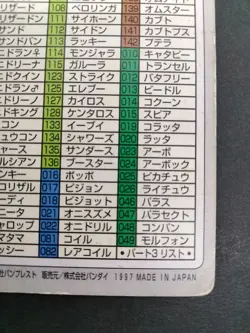 リザード 108 ベロリンガ 139 オムスター
ザードン 111 サイホーン 140 カブト
サンド 112 サイドン 141 カブトプス
サンドパン 113 ラッキー 142 プテラ
ニドラン♀ 114 モンジャラ 010 キャタピー
ニドリーナ 115 ガルーラ 011 トランセル
ニドクイン 123 ストライク 012 バタフリー
ニドラン♂ 125 エレブー 013 ビードル
ニドリーノ 127 カイロス 014 コクーン
ニドキング 128 ケンタロス 015 スピアー
ロコン 133 イーブイ 019 コラッタ
キュウコン 134 シャワーズ 020 ラッタ
ガーディ 135 サンダース 023 アーボ
ウインディ 136 ブースター 024 アーボック
016 ポッポ 025 ピカチュウ
ニョロゾ 017 ピジョン 026 ライチュウ
018 ピジョット 046 パラス
021 オニスズメ 047 パラセクト
022 オニドリル 048 コンパン
タマタマ 081 コイル 049 モルフォン
ナッシー 082 レアコイル •パート3 リスト•
社バンプレスト 販売元/株式会社バンダイ 1997 MADE IN JAPAN